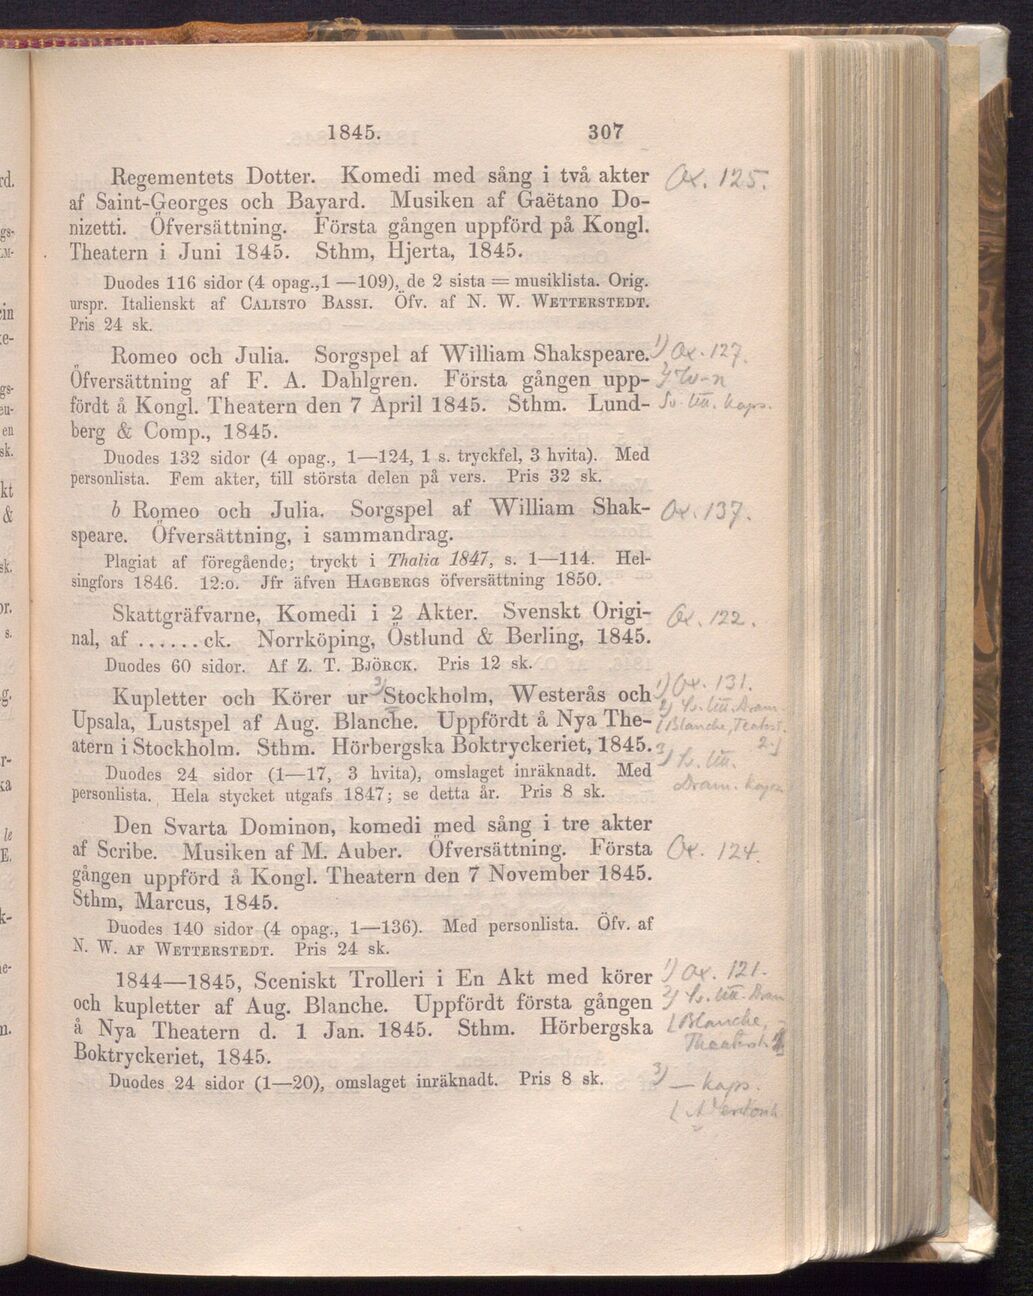 1845. 307
Regementets Dotter. Komedi med sång i två akter Ox. 125.
af Saint-Georges och Bayard. Musiken af Gaëtano Do-
nizetti. Öfversättning. Första gången uppförd på Kongl.
Theatern i Juni 1845. Sthm, Hjerta, 1845.
Duodes 116 sidor (4 opag.,1 —109), de 2 sista = musiklista. Orig.
urspr. Italienskt af CALISTO BASSI. Öfv. af N. W. WETTERSTEDT.
Pris 24 sk.
Romeo och Julia. Sorgspel af William Shakspeare. 1) Ox. 127.
Öfversättning af F. A. Dahlgren. Första gången upp-
fördt å Kongl. Theatern den 7 April 1845. Sthm. Lund- Sv. litt. kaps.
berg & Comp., 1845.
Duodes 132 sidor (4 opag., 1—124, 1 s. tryckfel, 3 hvita). Med
personlista. Fem akter, till största delen på vers. Pris 32 sk.
b Romeo och Julia. Sorgspel af William Shak- Ox. 137.
speare. Öfversättning, i sammandrag.
Plagiat af föregående; tryckt i Thalia 1847, s. 1—114. Hel-
singfors 1846. 12:o. Jfr äfven HAGBERGS öfversättning 1850.
Skattgräfvarne, Komedi i 2 Akter. Svenskt Origi- Ox. 122.
nal, af ......ck. Norrköping, Östlund & Berling, 1845.
Duodes 60 sidor. Af Z. T. BJÖRCK. Pris 12 sk.
Kupletter och Körer ur 3) Stockholm, Westerås och 1) Ox. 131.
Upsala, Lustspel af Aug. Blanche. Uppfördt å Nya The- 2) Sv. litt. Dram.
atern i Stockholm. Sthm. Hörbergska Boktryckeriet, 1845. 3) Sv. litt.
Duodes 24 sidor (1—17, 3 hvita), omslaget inräknadt. Med
personlista. Hela stycket utgafs 1847; se detta år. Pris 8 sk.
Den Svarta Dominon, komedi med sång i tre akter
af Scribe. Musiken af M. Auber. Öfversättning. Första Ox. 124.
gången uppförd å Kongl. Theatern den 7 November 1845.
Sthm, Marcus, 1845.
Duodes 140 sidor (4 opag., 1—136). Med personlista. Öfv. af
N. W. AF WETTERSTEDT. Pris 24 sk.
1844—1845, Sceniskt Trolleri i En Akt med körer 1) Ox. 121.
och kupletter af Aug. Blanche. Uppfördt första gången 2) Sv. litt. Dram
å Nya Theatern d. 1 Jan. 1845. Sthm. Hörbergska (Blanche,
Boktryckeriet, 1845.
Duodes 24 sidor (1—20), omslaget inräknadt. Pris 8 sk. 3) — kaps.